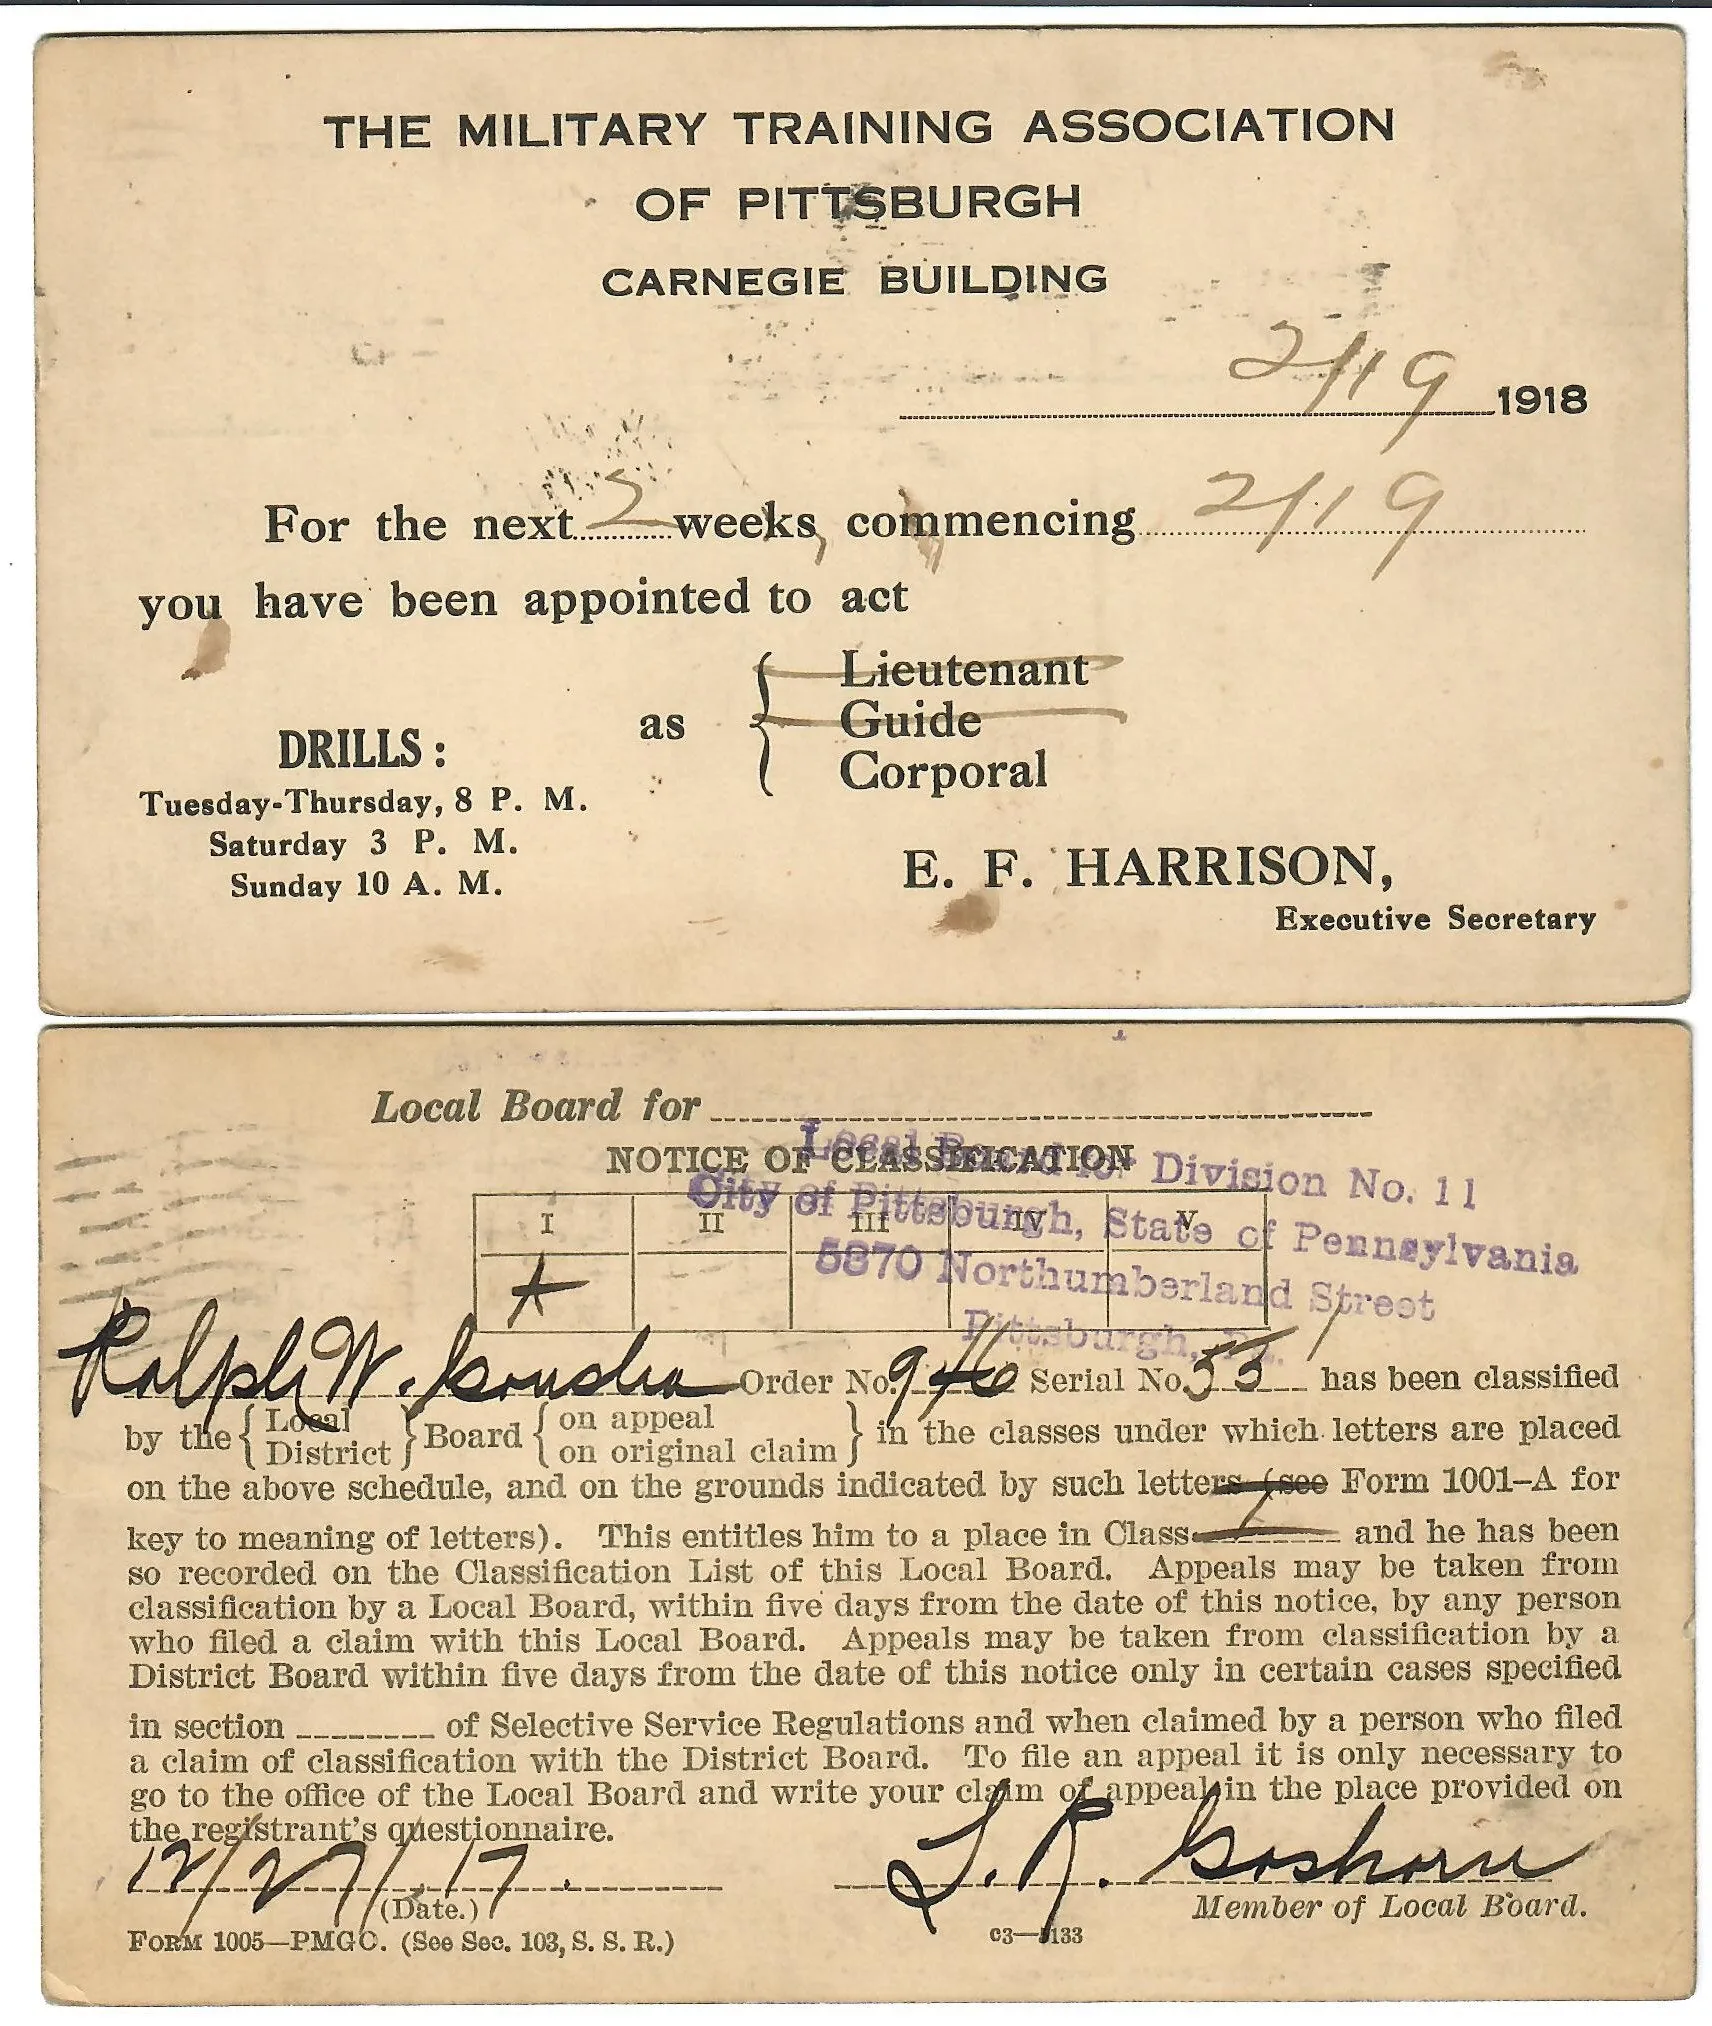 THE MILITARY TRAINING ASSOCIATION
OF PITTSBURGH
CARNEGIE BUILDING
2/19 1918
For the next 2 weeks, commencing 2/19
you have been appointed to act
as { Lieutenant
Guide
Corporal
DRILLS:
Tuesday-Thursday, 8 P. M.
Saturday 3 P. M.
Sunday 10 A. M.
E. F. HARRISON,
Executive Secretary
Local Board for
NOTICE OF CLASSIFICATION
Local Board for Division No. 11
City of Pittsburgh, State of Pennsylvania
5870 Northumberland Street
Pittsburgh, Pa.
I II III IV V
A
Ralph W. Order No. 946 Serial No. 55 has been classified
by the { Local District } Board { on appeal on original claim } in the classes under which letters are placed
on the above schedule, and on the grounds indicated by such letters (see Form 1001–A for
key to meaning of letters). This entitles him to a place in Class I and he has been
so recorded on the Classification List of this Local Board. Appeals may be taken from
classification by a Local Board, within five days from the date of this notice, by any person
who filed a claim with this Local Board. Appeals may be taken from classification by a
District Board within five days from the date of this notice only in certain cases specified
in section ________ of Selective Service Regulations and when claimed by a person who filed
a claim of classification with the District Board. To file an appeal it is only necessary to
go to the office of the Local Board and write your claim of appeal in the place provided on
the registrant's questionnaire.
12/27/17. L. R. Goshorn
(Date.) Member of Local Board.
FORM 1005—PMGO. (See Sec. 103, S. S. R.) c3—5133